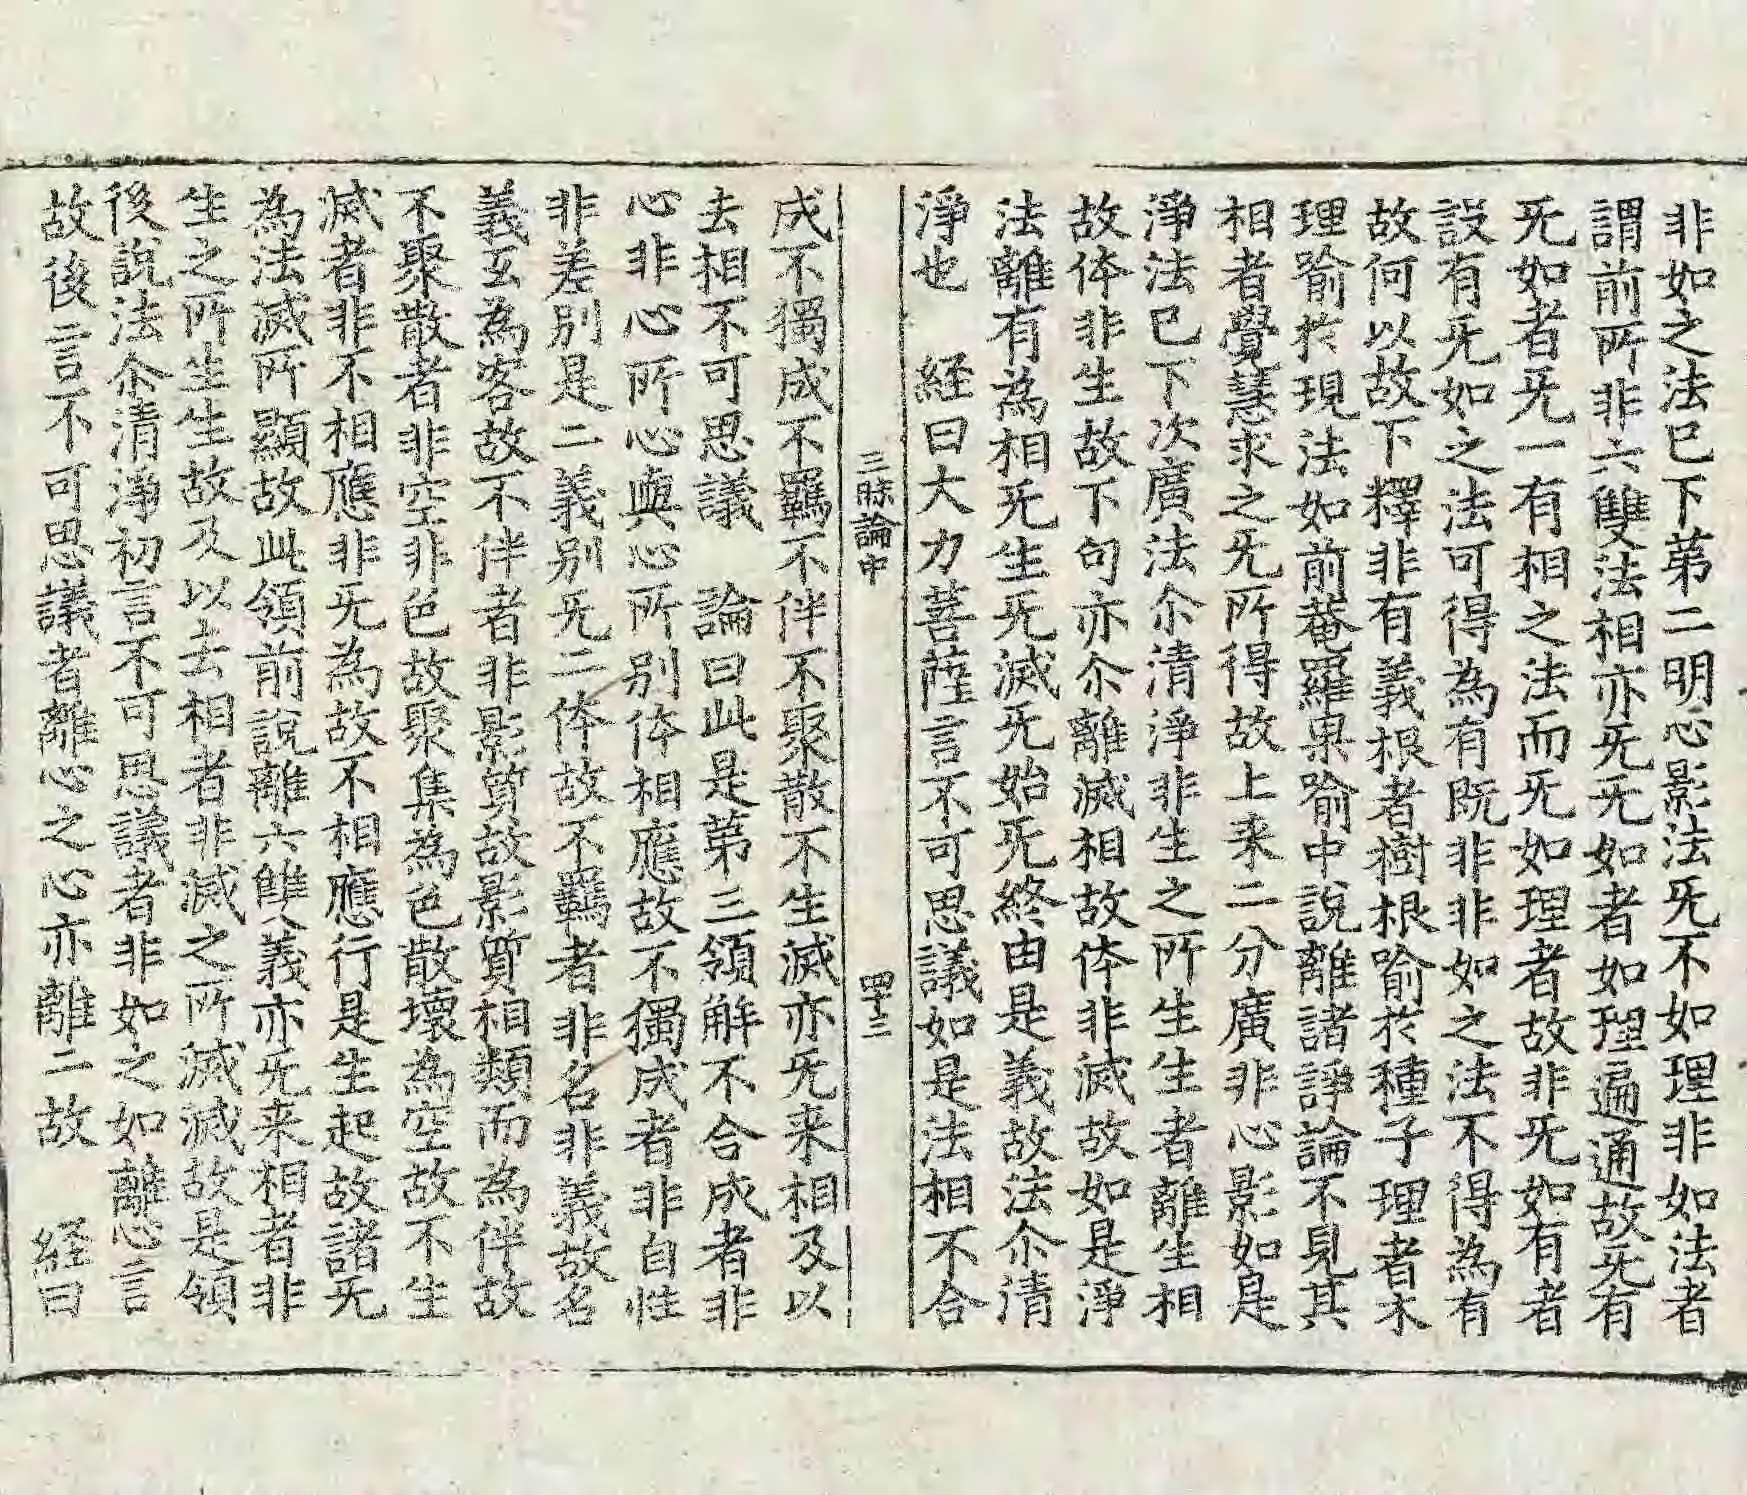 非如之法已下第二明心影法旡不如理非如法者
謂前所非六雙法相亦旡旡如者如理遍通故旡有
旡如者旡一有相之法而旡如理者故非旡如有者
設有旡如之法可得為有既非非如之法不得為有
故何以故下釋非有義根者樹根喻於種子理者木
理喻於現法如前菴羅果喻中說離諸諍論不見其
相者覺慧求之旡所得故上来二分廣非心影如是
淨法已下次廣法尒清淨非生之所生生者離生相
故体非生故下句亦尒離滅相故体非滅故如是淨
法離有為相旡生旡滅旡始旡終由是義故法尒清
淨也 経曰大力菩薩言不可思議如是法相不合
三昧論中 四十三
成不獨成不羈不伴不聚散不生滅亦旡来相及以
去相不可思議 論曰此是第三領解不合成者非
心非心所心與心所別体相應故不獨成者非自性
非差別是二義別旡二体故不羈者非名非義故名
義互為客故不伴者非影質故影質相類而為伴故
不聚散者非空非色故聚集為色散壞為空故不生
滅者非不相應非旡為故不相應行是生起故諸旡
為法滅所顯故此領前說離六雙義亦旡来相者非
生之所生生故及以去相者非滅之所滅滅故是領
後說法尒清淨初言不可思議者非如之如離心言
故後言不可思議者離心之心亦離二故 経曰